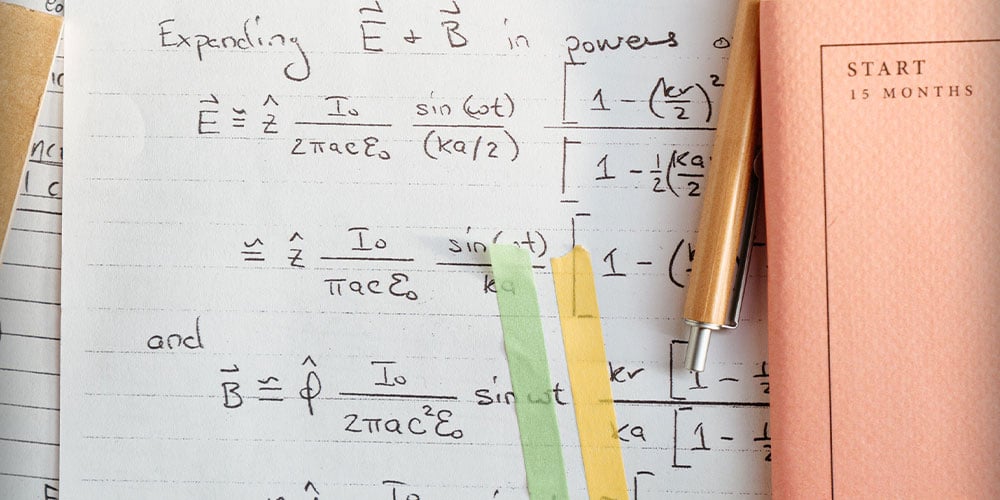 Expanding E⃗ + B⃗ in powers
E⃗ ≅ ẑ I₀/(2πacε₀) sin(ωt)/(ka/2) [1 - (kr/2)²/[1 - ½(ka/2
≅ ẑ I₀/(πacε₀) sin(ωt)/ka [1 - (
and
B⃗ ≅ φ̂ I₀/(2πac²ε₀) sin ωt kr [1 - ½/ka [1 - ½
START
15 MONTHS